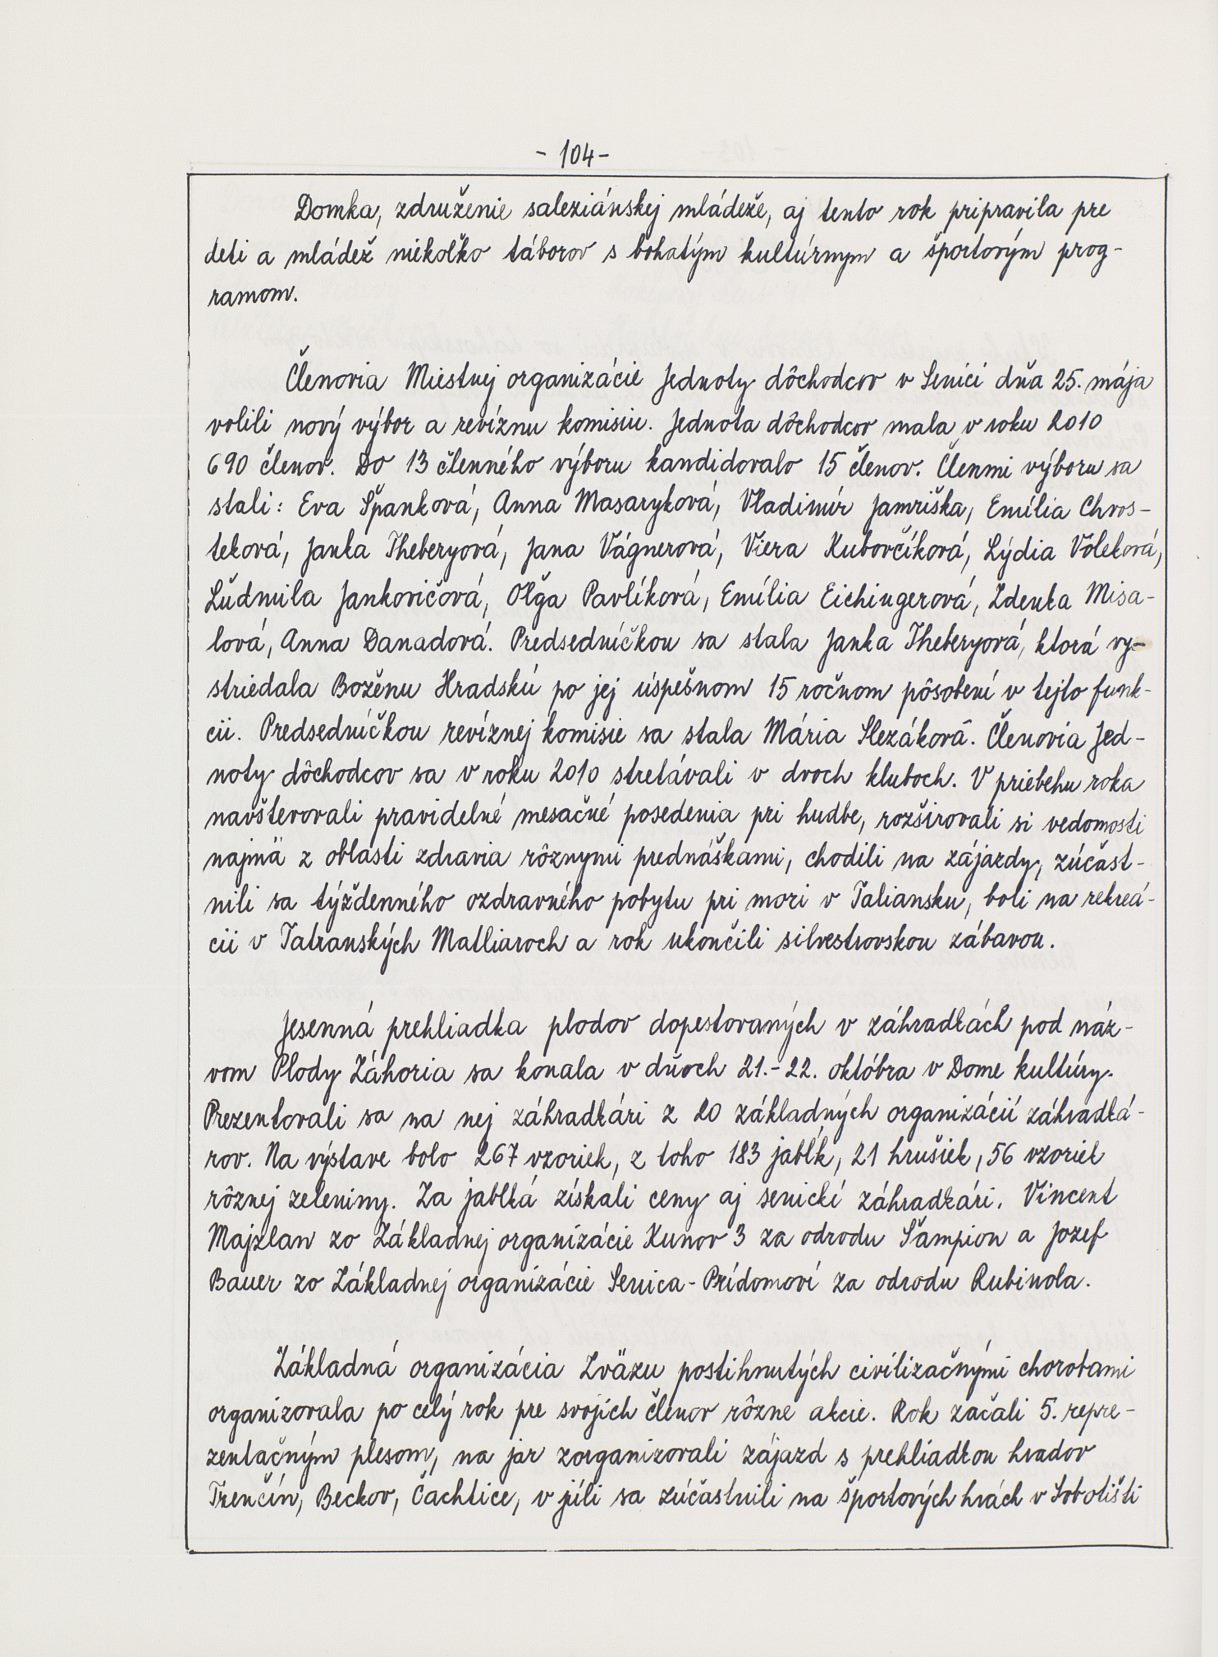 - 104 -
Domka, združenie saleziánskej mládeže, aj tento rok pripravila pre
deti a mládež niekoľko táborov s bohatým kultúrnym a športovým prog-
ramom.
Členovia Miestnej organizácie Jednoty dôchodcov v Senici dňa 25. mája
volili nový výbor a revíznu komisiu. Jednota dôchodcov mala v roku 2010
690 členov. Do 13 členného výboru kandidovalo 15 členov. Členmi výboru sa
stali: Eva Španková, Anna Masaryková, Vladimír Jamriška, Emília Chros-
teková, Janka Theberyová, Jana Vágnerová, Viera Kubovčíková, Lýdia Voleková,
Ľudmila Jankovičová, Oľga Pavlíková, Emília Eichingerová, Zdenka Misa-
lová, Anna Danadová. Predsedníčkou sa stala Janka Theberyová, ktorá vy-
striedala Boženu Hradskú po jej úspešnom 15 ročnom pôsobení v tejto funk-
cii. Predsedníčkou revíznej komisie sa stala Mária Slezáková. Členovia Jed-
noty dôchodcov sa v roku 2010 stretávali v dvoch kluboch. V priebehu roka
navštevovali pravidelné mesačné posedenia pri hudbe, rozširovali si vedomosti
najmä z oblasti zdravia rôznymi prednáškami, chodili na zájazdy, zúčast-
nili sa týždenného ozdravného pobytu pri mori v Taliansku, boli na rekreá-
cii v Tatranských Matliaroch a rok ukončili silvestrovskou zábavou.
Jesenná prehliadka plodov dopestovaných v záhradkách pod náz-
vom Plody Záhoria sa konala v dňoch 21.-22. októbra v Dome kultúry.
Prezentovali sa na nej záhradkári z 20 základných organizácií záhradká-
rov. Na výstave bolo 267 vzoriek, z toho 183 jabĺk, 21 hrušiek, 56 vzoriek
rôznej zeleniny. Za jablká získali ceny aj senickí záhradkári. Vincent
Majzlan zo Základnej organizácie Kunov 3 za odrodu Šampion a Jozef
Bauer zo Základnej organizácie Senica - Prídomoví za odrodu Rubinola.
Základná organizácia Zväzu postihnutých civilizačnými chorobami
organizovala po celý rok pre svojich členov rôzne akcie. Rok začali 5. repre-
zentačným plesom, na jar zorganizovali zájazd s prehliadkou hradov
Trenčín, Beckov, Čachtice, v júli sa zúčastnili na športových hrách v Sobotišti